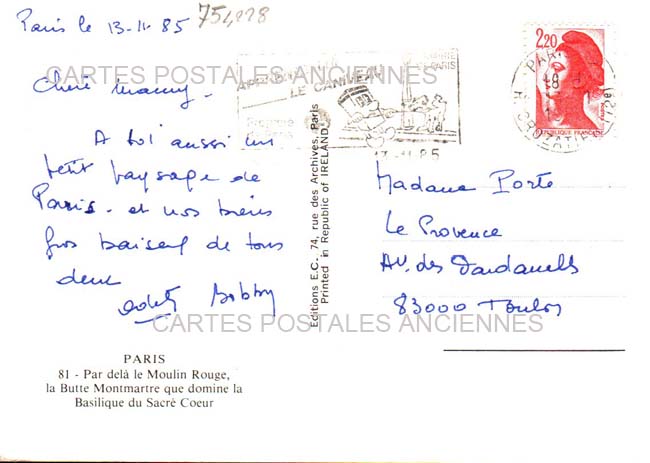 Paris le 13-11-85
754228
Chère Mamy-
A toi aussi un
petit paysage de
Paris - et nos biens
gros baisers de tous
deux
Bobby
PARIS
81 - Par delà le Moulin Rouge,
la Butte Montmartre que domine la
Basilique du Sacré Coeur
Editions E.C., 74, rue des Archives, Paris
Printed in Republic of IRELAND
LE CANIVEAU
PARIS
13-11-85
2,20
REPUBLIQUE FRANCAISE
PARIS
CROZATIER
Madame Porte
Le Provence
AV. des Dardanelles
83000 Toulon
CARTES POSTALES ANCIENNES
CARTES POSTALES ANCIENNES